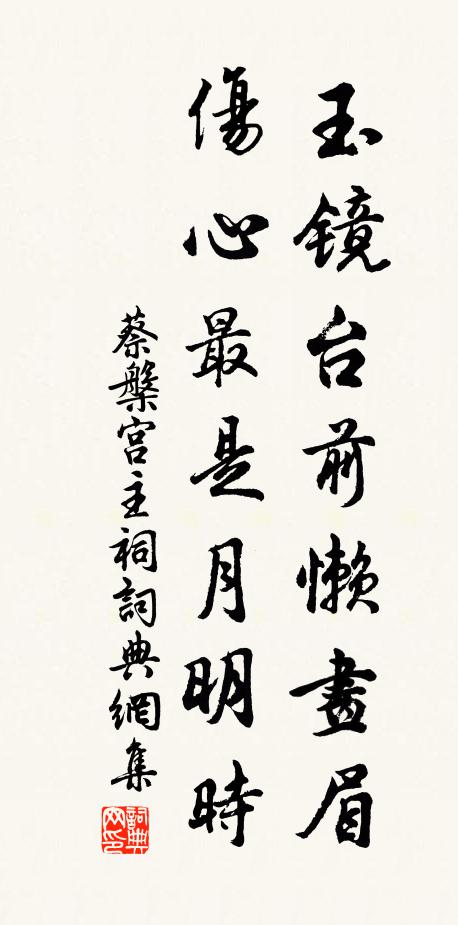 玉鏡台前懶畫眉
傷心最是月明時
蔡槃宫主祠詞典網集
詞典网印